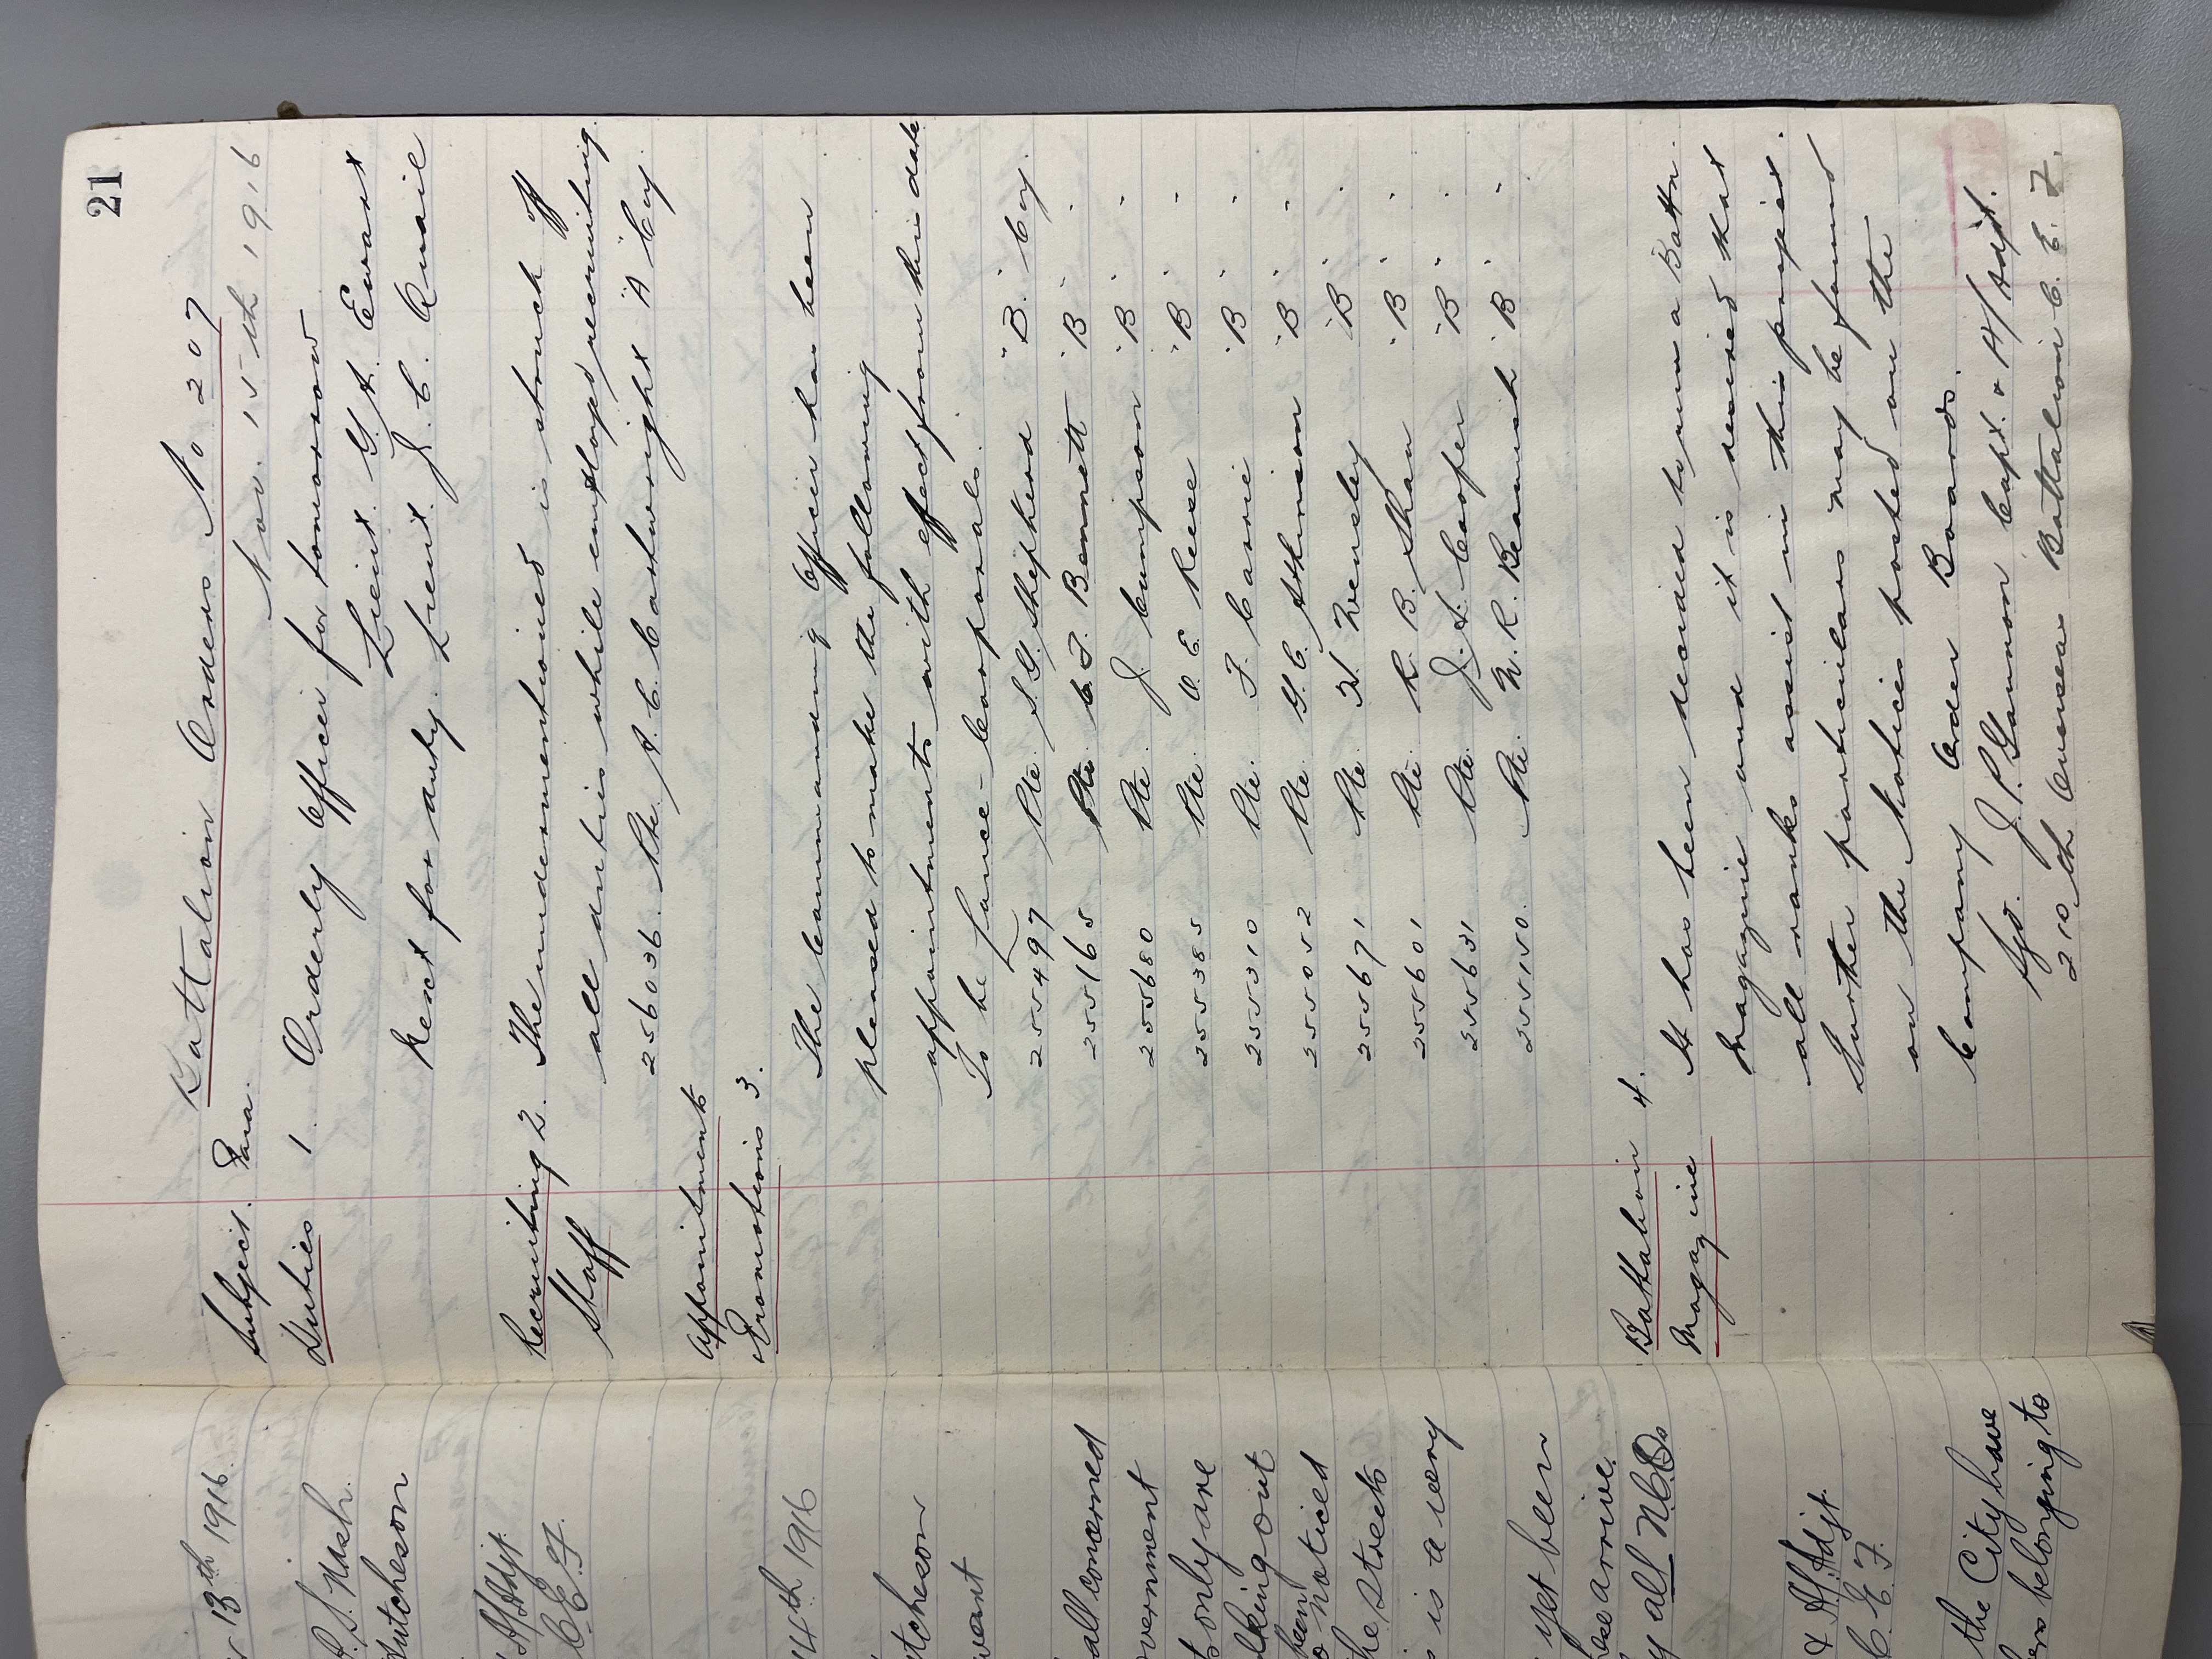 21
Battalion Orders No 207
Subject. Para. Nov. 15th 1916
Duties 1. Orderly Officer for tomorrow
Lieut. G. A. Ewart
Next for duty. Lieut. J. C. Quail
Recruiting 2. The undermentioned is struck off
Staff all duties while employed recruiting.
256036. Pte. A. C. Cartwright "A" Coy.
Appointments
Promotions 3. The Commanding Officer has been
pleased to make the following
appointments with effect from this date
To be Lance-Corporals.
255497 Pte. S. G. Shepherd "B." Coy.
255165 Pte. C. F. Bennett "B" "
255680 Pte. J. Cumpson "B " "
255385 Pte. O. E. Reese "B " "
255310 Pte. F. Carrie "B " "
255052 Pte. G. C. Atkinson "B " "
255671 Pte. H. Wensley "B " "
255601 Pte. R. B. Shan "B " "
255631 Pte. J. A. Cooper "B " "
255150. Pte. W. R. Beamish "B " "
Battalion 4. It has been decided to run a Battn.
Magazine Magazine and it is desired that
all ranks assist in this project.
Further particulars may be found
on the Notices posted on the
Company Order Boards.
Sgd. J. P. Gannon Capt. & A/Adjt.
210th Overseas Battalion C. E. F.
13th 1916.
P. S. Nash.
Hutcheson
A/Adjt.
C. E. F.
14th 1916
utcheson
want
all concerned
vernment
only are
lking out
been noticed
the streets
is a very
yet been
ese arrive.
y all N.C.Os
& A/Adjt.
C. E. F.
the City have
ers belonging to